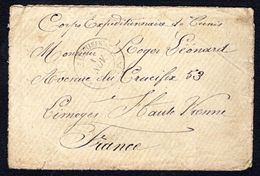 Corps Expéditionnaire de Tunis
Monsieur Roger Léonard
Avenue du Crucifix 53
Limoges Haute Vienne
France